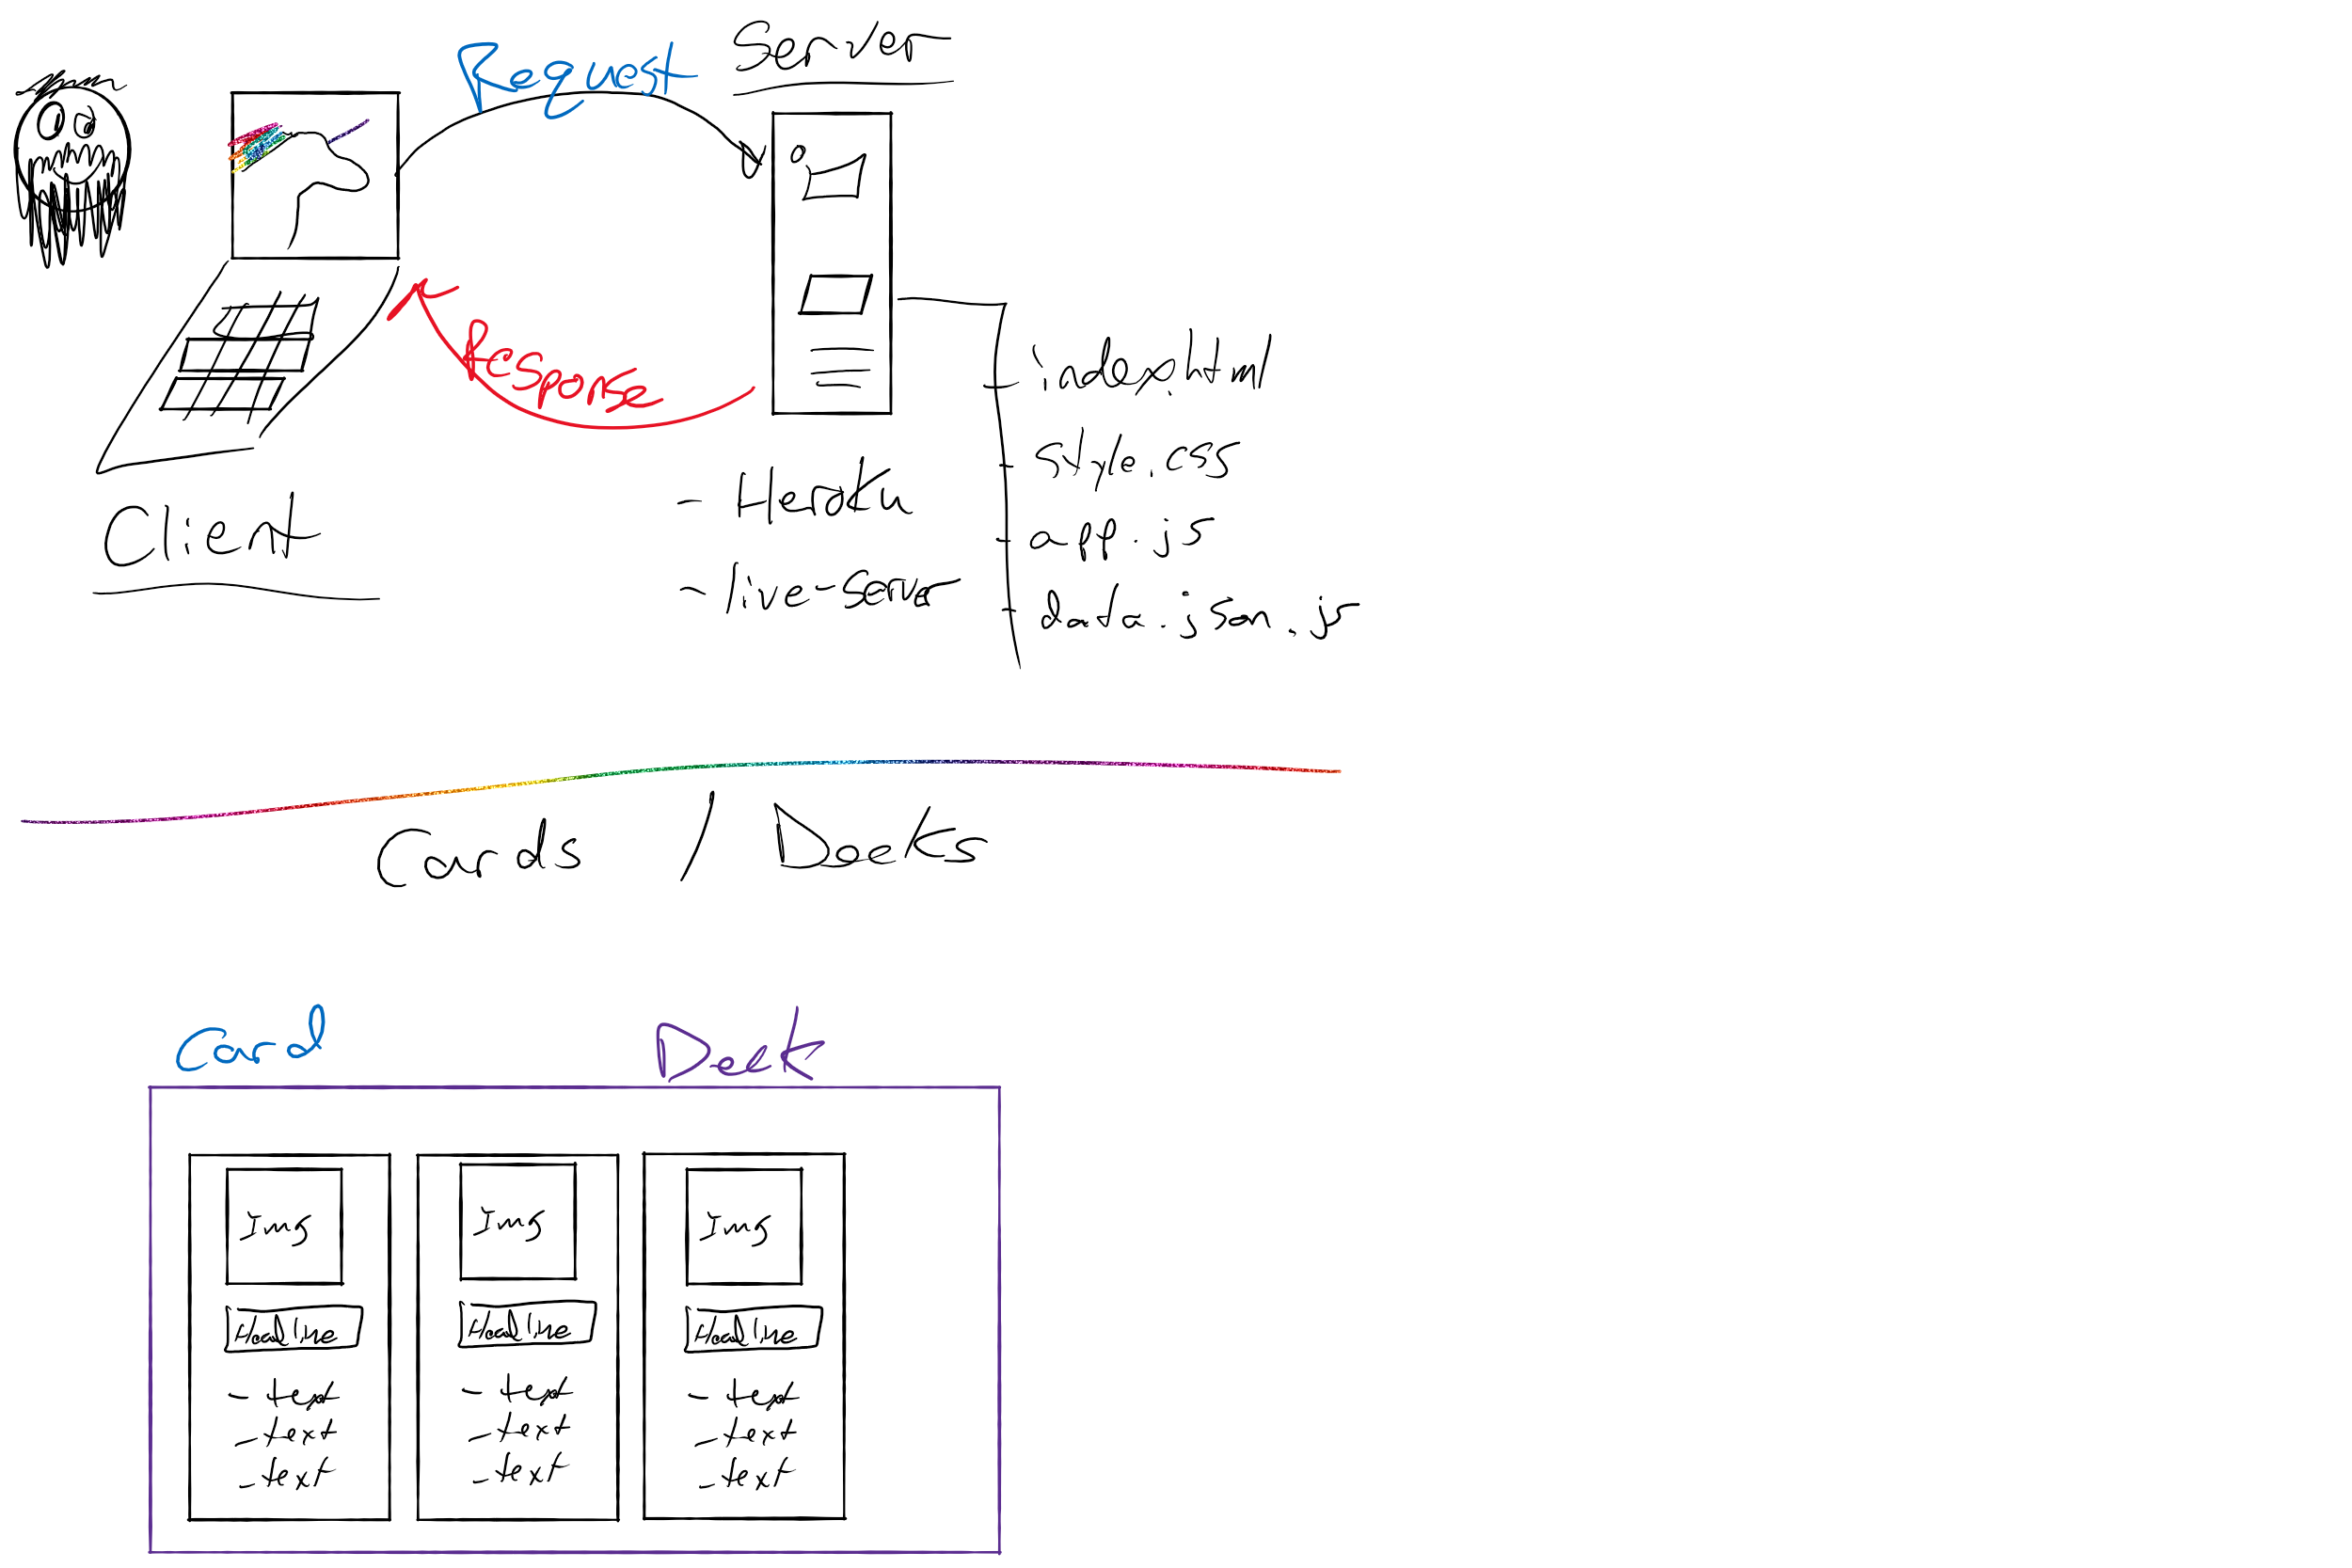 Request
Server
Response
index.html
style.css
app.js
data.json.js
- Heroku
- live-server
Client
Cards / Decks
Card
Deck
Img
Headline
- text
- text
- text
Img
Headline
- text
- text
- text
Img
Headline
- text
- text
- text